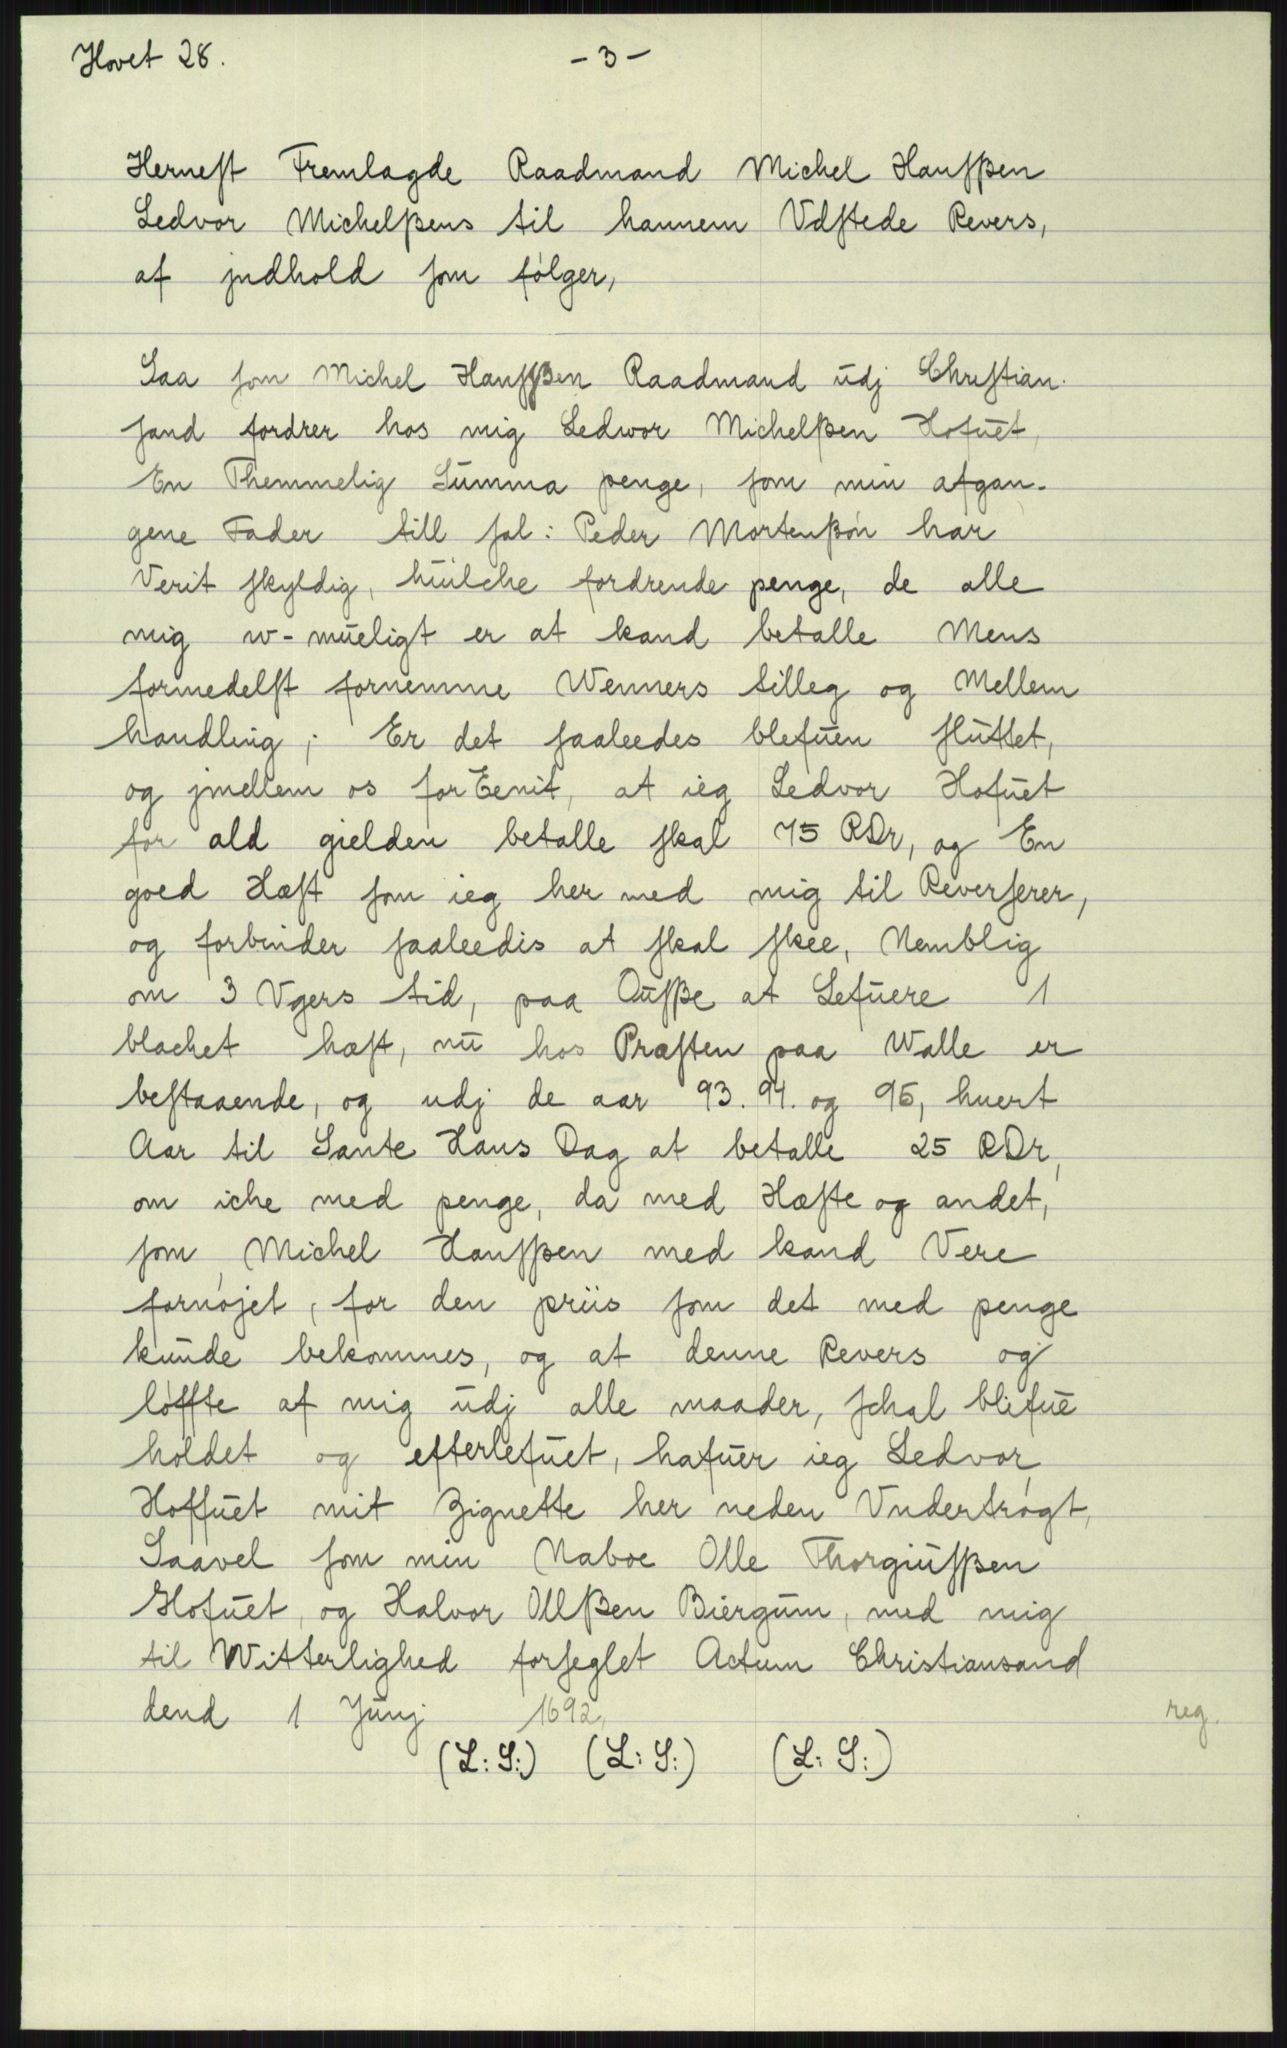 Hovet 28.
- 3 -
Hernest Fremlagde Raadmand Michel Hansßen
Ledvor Michelßens til hannem Vdstede Revers,
af jndhold som følger,
Saa som Michel Hansßen Raadmand udj Christian-
sand fordrer hos mig Ledwor Michelßen Hofuet,
En Themmelig Summa penge, som min afgan-
gene Fader till sal: Peder Mortenßøn har
Verit skyldig, huilche fordrende penge, de alle
mig w-mueligt er at kand betalle Mens
formedelst fornemme Wenners tilleg og Mellem
handling; Er det saaleedes blefuen sluttet,
og jmellem os forEenit, at ieg Ledvor Hofuet
for ald gielden betalle skal 75 RDr, og En
goed Hæst som ieg her med mig til Reverserer,
og forbinder saaleedis at skal skee, Nemblig
om 3 Vgers tid, paa Oußße at Lefuere 1
blachet hæst, nu hos Præsten paa Walle er
bestaaende, og udj de aar 93. 94. og 95, huert
Aar til Sante Hans Dag at betalle 25 RDr,
om iche med penge, da med Hæste og andet,
som Michel Hansßen med kand Vere
fornøjet, for den priis som det med penge
kunde bekommes, og at denne Revers og
løffte af mig udj alle maader, schal blifue
holdet og efterlefuet, hafuer ieg Ledvor
Hoffuet mit Zignette her neden Vndertrøgt,
Saavel som min Naboe Olle Thorgiußßen
Hofuet, og Halvor Ollßen Biergum, med mig
til Witterlighed forseglet Actum Christiansand
dend 1 Junj 1692,
reg.
(L: S:) (L: S:) (L: S:)